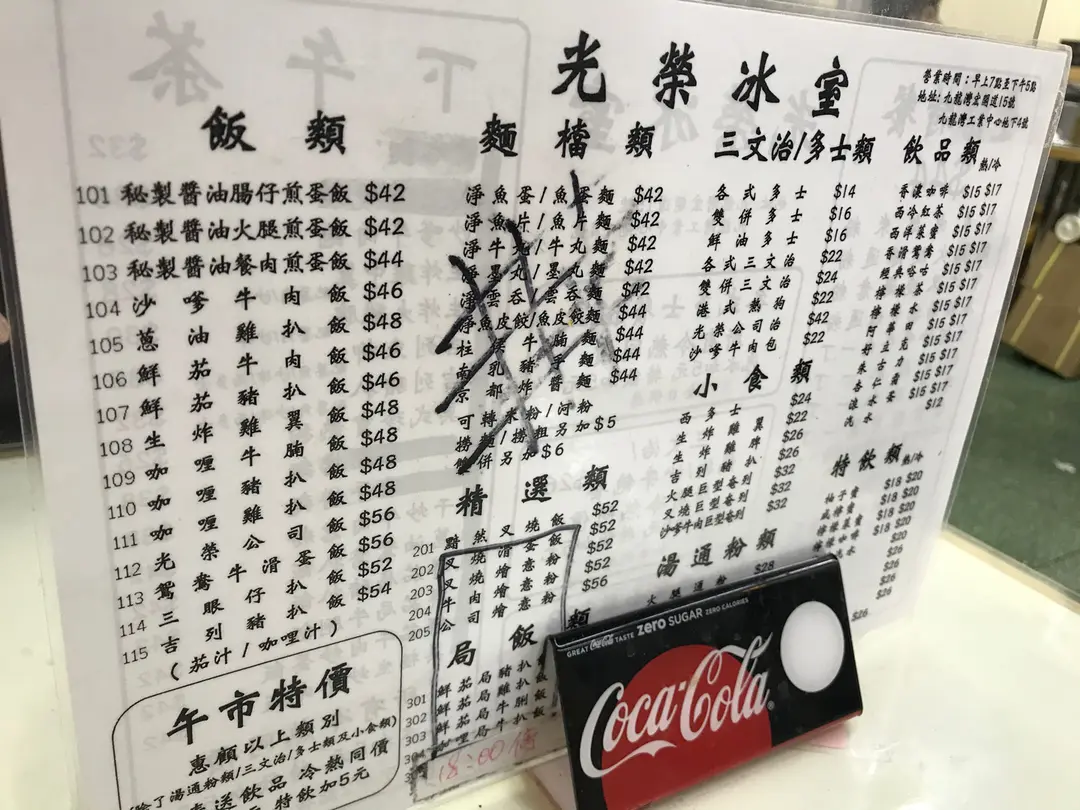 光榮冰室
營業時間：早上7點至下午5點
地址：九龍灣宏開道15號
九龍灣工業中心地下4號
飯類
101 秘製醬油腸仔煎蛋飯 $42
102 秘製醬油火腿煎蛋飯 $42
103 秘製醬油餐肉煎蛋飯 $44
104 沙嗲牛肉飯 $46
105 蔥油雞扒飯 $48
106 鮮茄牛肉飯 $46
107 鮮茄豬扒飯 $46
108 生炸雞翼飯 $48
109 咖喱牛腩飯 $48
110 咖喱豬扒飯 $48
111 咖喱雞扒飯 $48
112 光榮公司飯 $56
113 鴛鴦牛滑蛋飯 $56
114 三眼仔飯 $52
115 吉列豬扒飯 $54
(茄汁/咖喱汁)
午市特價
惠顧以上類別
(除了湯通粉類/三文治/多士類及小食類)
送飲品 冷熱同價
特飲加5元
麵檔類
淨魚蛋/魚蛋麵 $42
淨魚片/魚片麵 $42
淨牛丸/牛丸麵 $42
淨墨丸/墨丸麵 $42
淨雲吞/雲吞麵 $42
淨魚皮餃/魚皮餃麵 $44
牛腩麵 $44
南乳豬 麵 $44
京都炸醬麵 $44
可轉米粉/河粉
撈麵/撈粗另加$5
雙併另加$6
精選類
201 叉燒飯 $52
202 叉燒滑蛋飯 $52
203 叉燒燴意粉 $52
204 牛肉燴意粉 $52
205 公司燴意粉 $56
局飯類
301 鮮茄局豬扒飯
302 鮮茄局雞扒飯
303 鮮茄局牛脷飯
304 咖喱局牛扒飯
18:00後
三文治/多士類
各式多士 $14
雙併多士 $16
鮮油多士 $16
各式三文治 $22
雙併三文治 $24
港式熱狗 $22
光榮公司治 $42
沙嗲牛肉包 $22
小食類
西多士 $24
生炸雞翼 $22
生炸雞脾 $26
吉列豬扒 $26
火腿巨型奄列 $32
叉燒巨型奄列 $32
沙嗲牛肉巨型奄列 $32
湯通粉類
火腿通粉 $28
飲品類
熱/冷
香濃咖啡 $15 $17
西冷紅茶 $15 $17
西洋菜蜜 $15 $17
香滑鴛鴦 $15 $17
經典哈咕 $15 $17
檸檬茶 $15 $17
檸檬水 $15 $17
阿華田 $15 $17
好立克 $15 $17
朱古力 $15 $17
杏仁霜 $15 $17
滾水蛋 $15 $17
汽水 $12
特飲類
熱/冷
柚子蜜 $18 $20
檸檬菜蜜 $18 $20
檸檬咖啡 $18 $20
$20
$26
$26
$26
$26
$26
GREAT Coca-Cola TASTE zero SUGAR ZERO CALORIES
Coca-Cola